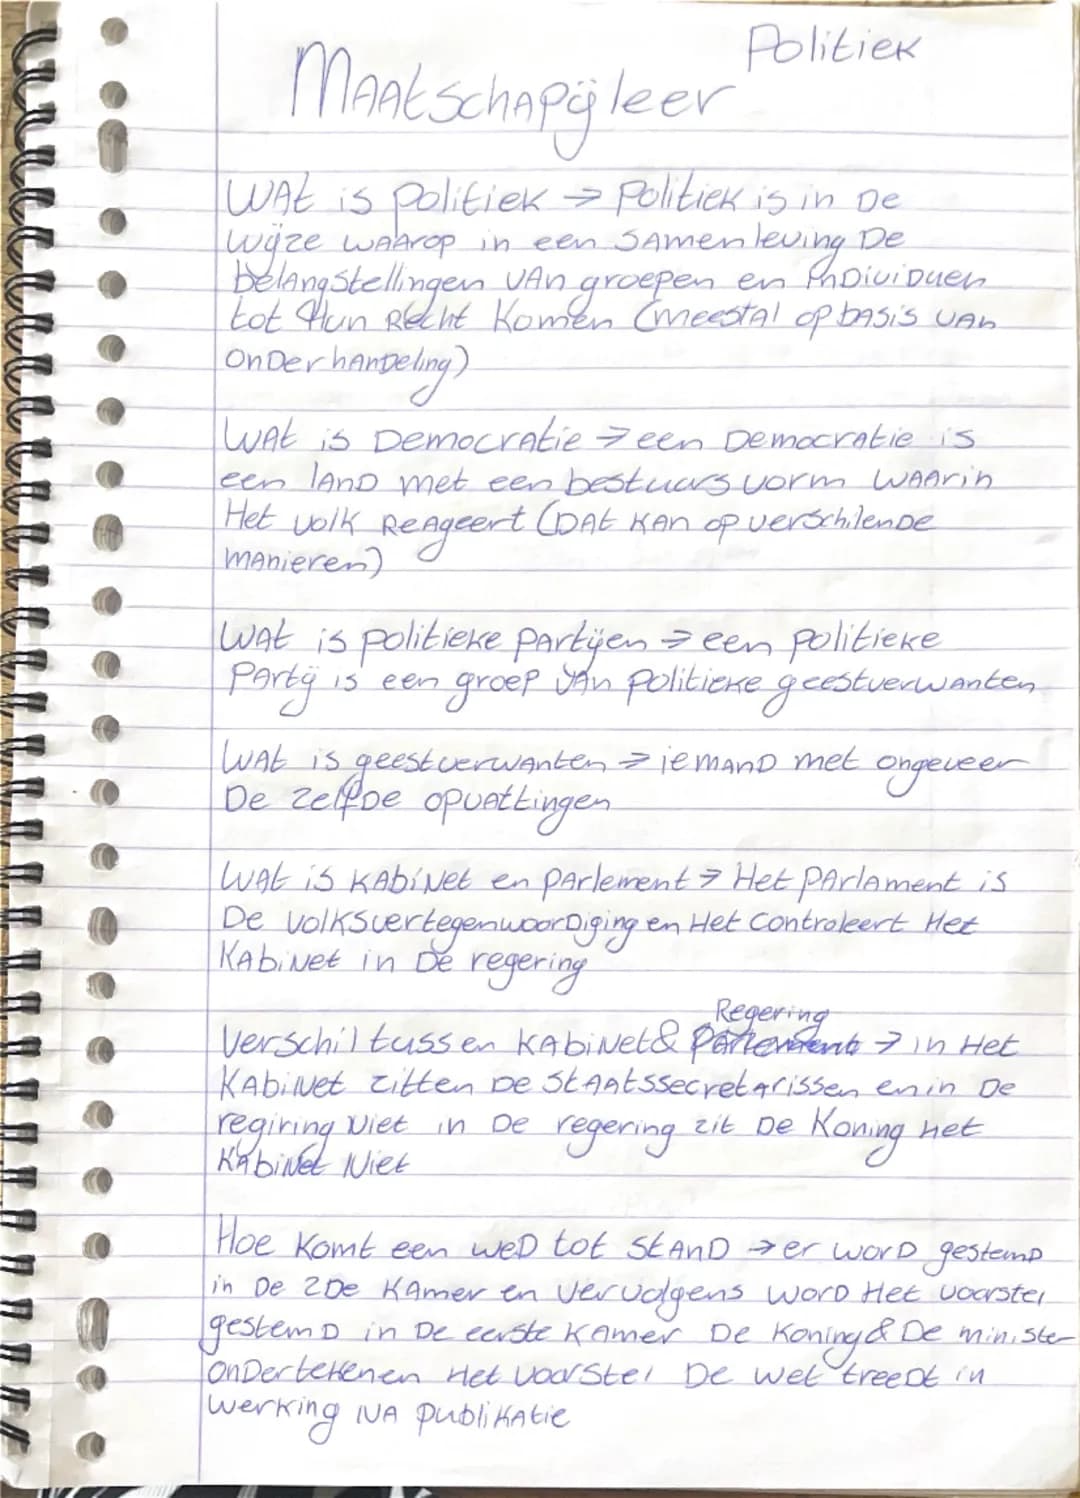 Politiek
Maatschapijleer
Wat is politiek → Politiek is in De
wijze waarop in een samenleving De
belangstellingen van groepen en inDiviDuen
tot Hun Recht Komen (meestal op basis van
onDerhanDeling)
Wat is Democratie → een Democratie is
een lanD met een bestuursvorm waarin
Het volk Reageert (Dat kan op verschilenDe
manieren)
Wat is politieke partijen → een politieke
Partij is een groep van politieke geestverwanten
Wat is geestverwanten → iemanD met ongeveer
De zelfDe opvattingen
Wat is kabinet en parlement → Het parlament is
De volksvertegenwoorDiging en Het controleert Het
Kabinet in De regering
Regering
Verschil tussen Kabinet & Parlement → in Het
Kabinet zitten De Staatssecretarissen en in De
regiring Niet in De regering zit De Koning het
Kabinet Niet
Hoe komt een weD tot stanD → er worD gestemD
in De 2De Kamer en vervolgens worD Het voorstel
gestemD in De eerste kamer De Koning & De minister
onDertekenen Het voorstel De wet treeDt in
werking NA publikatie